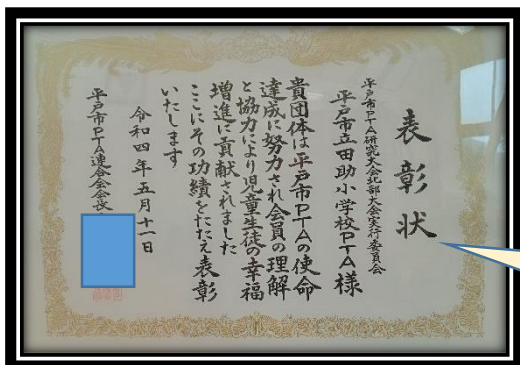 表彰状
平戸市PTA研究大会北部大会実行委員会
平戸市立田助小学校PTA様
貴団体は平戸市PTAの使命
達成に努力され会員の理解
と協力により児童生徒の幸福
増進に貢献されました
ここにその功績をたたえ表彰
いたします
令和四年五月十一日
平戸市PTA連合会会長